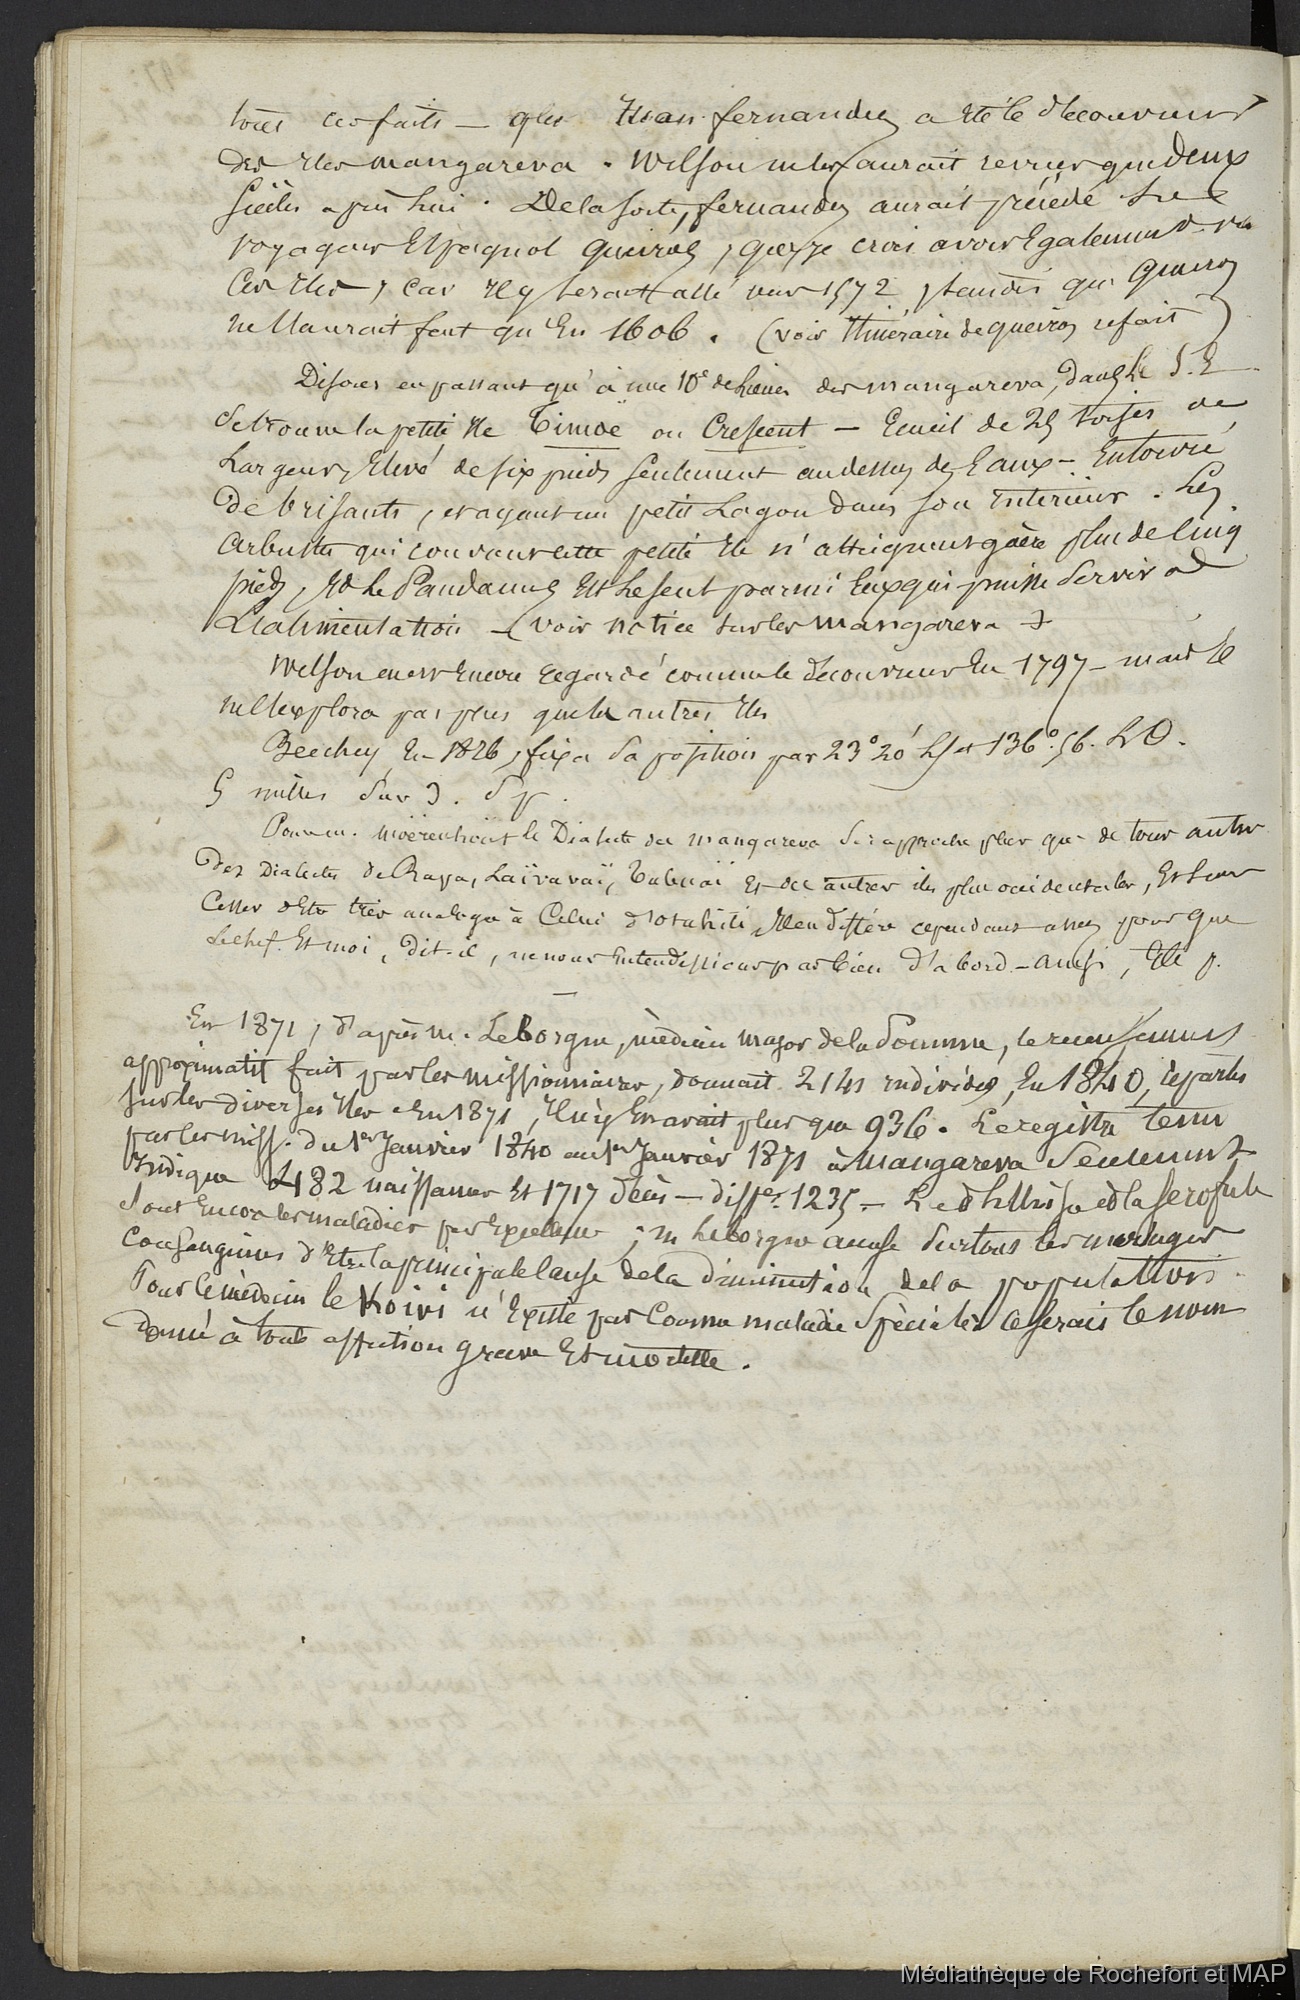 tous ces faits — que Juan fernandez a été le découvreur
des Iles mangareva. Wilson ne les aurait revues que deux
siècles après lui. De la sorte, fernandez aurait précédé le
voyageur Espagnol Queiros, que je crois avoir Egalement vu
Ces Iles, car Il y serait allé vers 1572, tandis que Queiros
ne l'aurait fait qu'En 1606. (voir Itinéraire de queiros refait)
Disons en passant qu'à une 10e de lieues des mangareva, dans le S. E
se trouve la petite Ile Timoë ou Crescent — Ecueil de 25 toises de
Largeur, Elevé de six pieds seulement au dessus des Eaux — Entouré
De brisants, et ayant un petit Lagon dans son interieur. Les
Arbustes qui couvrent cette petite Ile n'atteignent guère plus de Cinq
pieds, Et le Pandanus Est le seul parmi Eux qui puisse servir à
L'alimentation — (voir notice sur les mangareva)
Wilson en est Encore regardé comme le découvreur En 1797 — mais Il
ne l'explora pas plus que les autres Iles
Beechey En 1826, fixa sa position par 23° 20' LS et 136°. 56. LO.
5 milles sur 3.
Pour m. Moërenhoüt le Dialecte des mangareva se rapproche plus que de tout autre
Des Dialectes de Rapa, Laïvavaï, Tubuaï Et des autres iles plus occidentales, Et sans
Cesser d'Etre très analogue à Celui d'Otahiti, Il en diffère cependant assez pour que
le chef Et moi, dit-il, ne nous Entendissions pas bien d'abord — Ausi, Ile p.
—
En 1871, d'après m. Le Borgne, médecin major de la Somme, le recensement
approximatif fait par les missionnaires, donnait 2141 individus, En 1840, répartis
sur les diverses Iles. En 1871, Il n'y En avait plus que 936. Le registre tenu
par les miss. du 1er Janvier 1840 au 1er Janvier 1871 à Mangareva Seulement
Indique 482 naissances Et 1717 décès — diffce. 1235 — La phthisie et la scrofule
Sont Encore les maladies par Excellence; m Leborgne accuse surtout les mariages
Consanguins d'Etre la principale Cause de la diminution de la population.
Pour le médecin le Koivi n'Existe pas Comme maladie Spéciale; ce serait le nom
Donné à toute affection grave Et mortelle.
Médiathèque de Rochefort et MAP